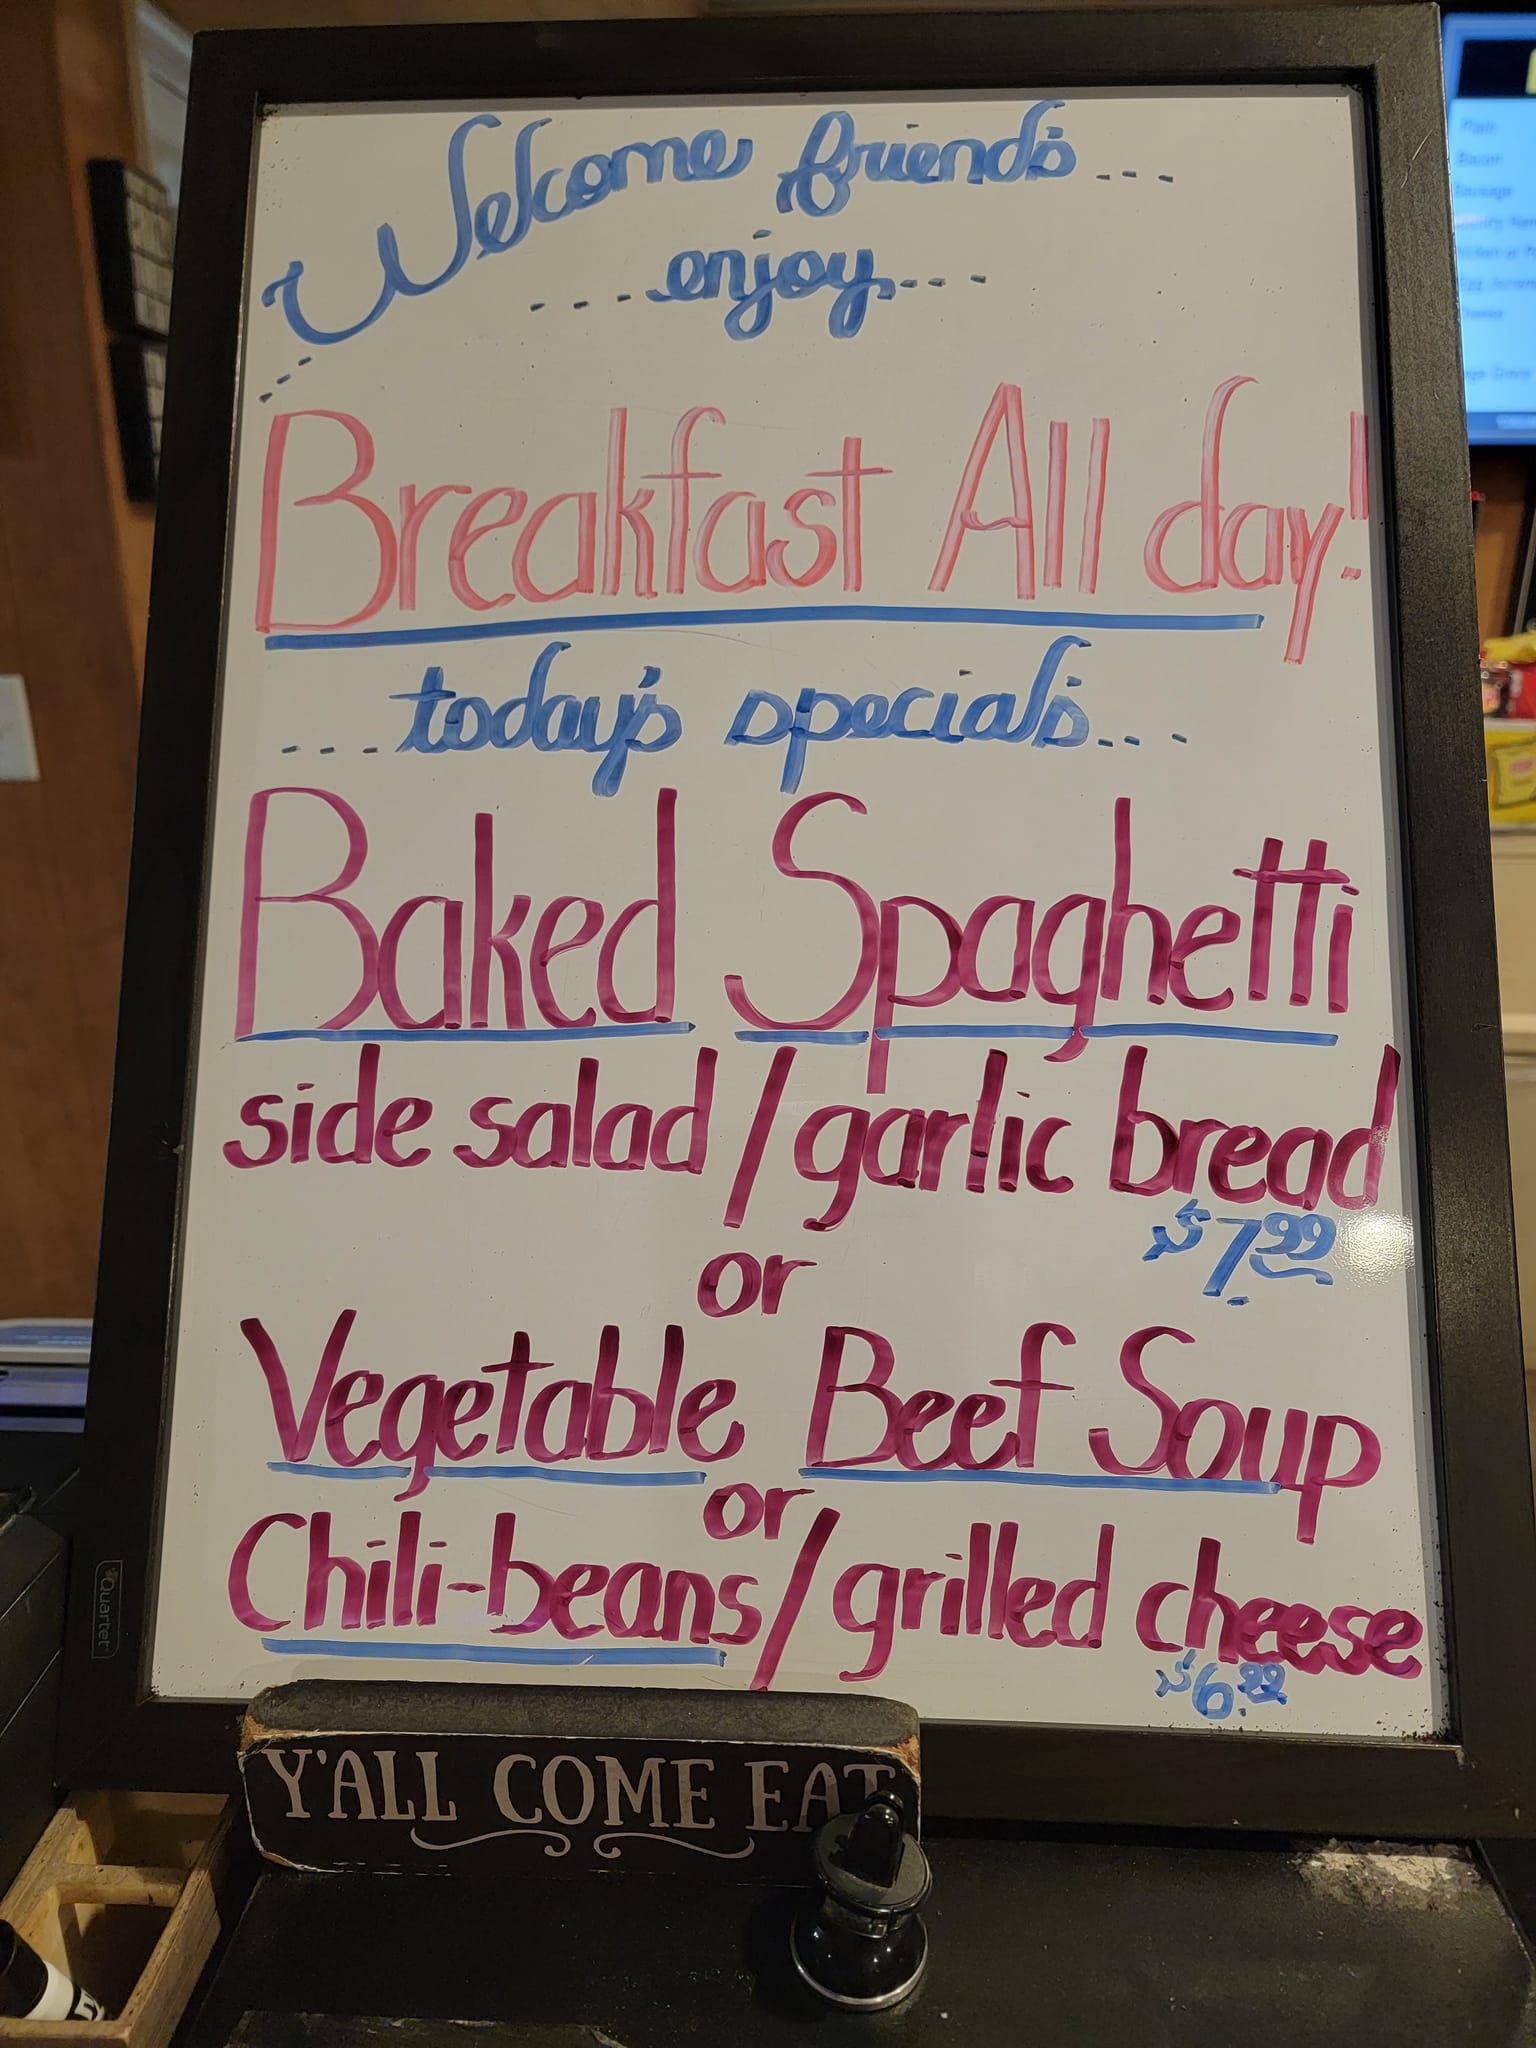 Welcome friends...
...enjoy...
...Breakfast All day!
...today's specials...
Baked Spaghetti
side salad/garlic bread
$7.99
or
Vegetable Beef Soup
or
Chili-beans/grilled cheese
$6.99
Quartet
Y'ALL COME EAT
Plain
Bacon
Sausage